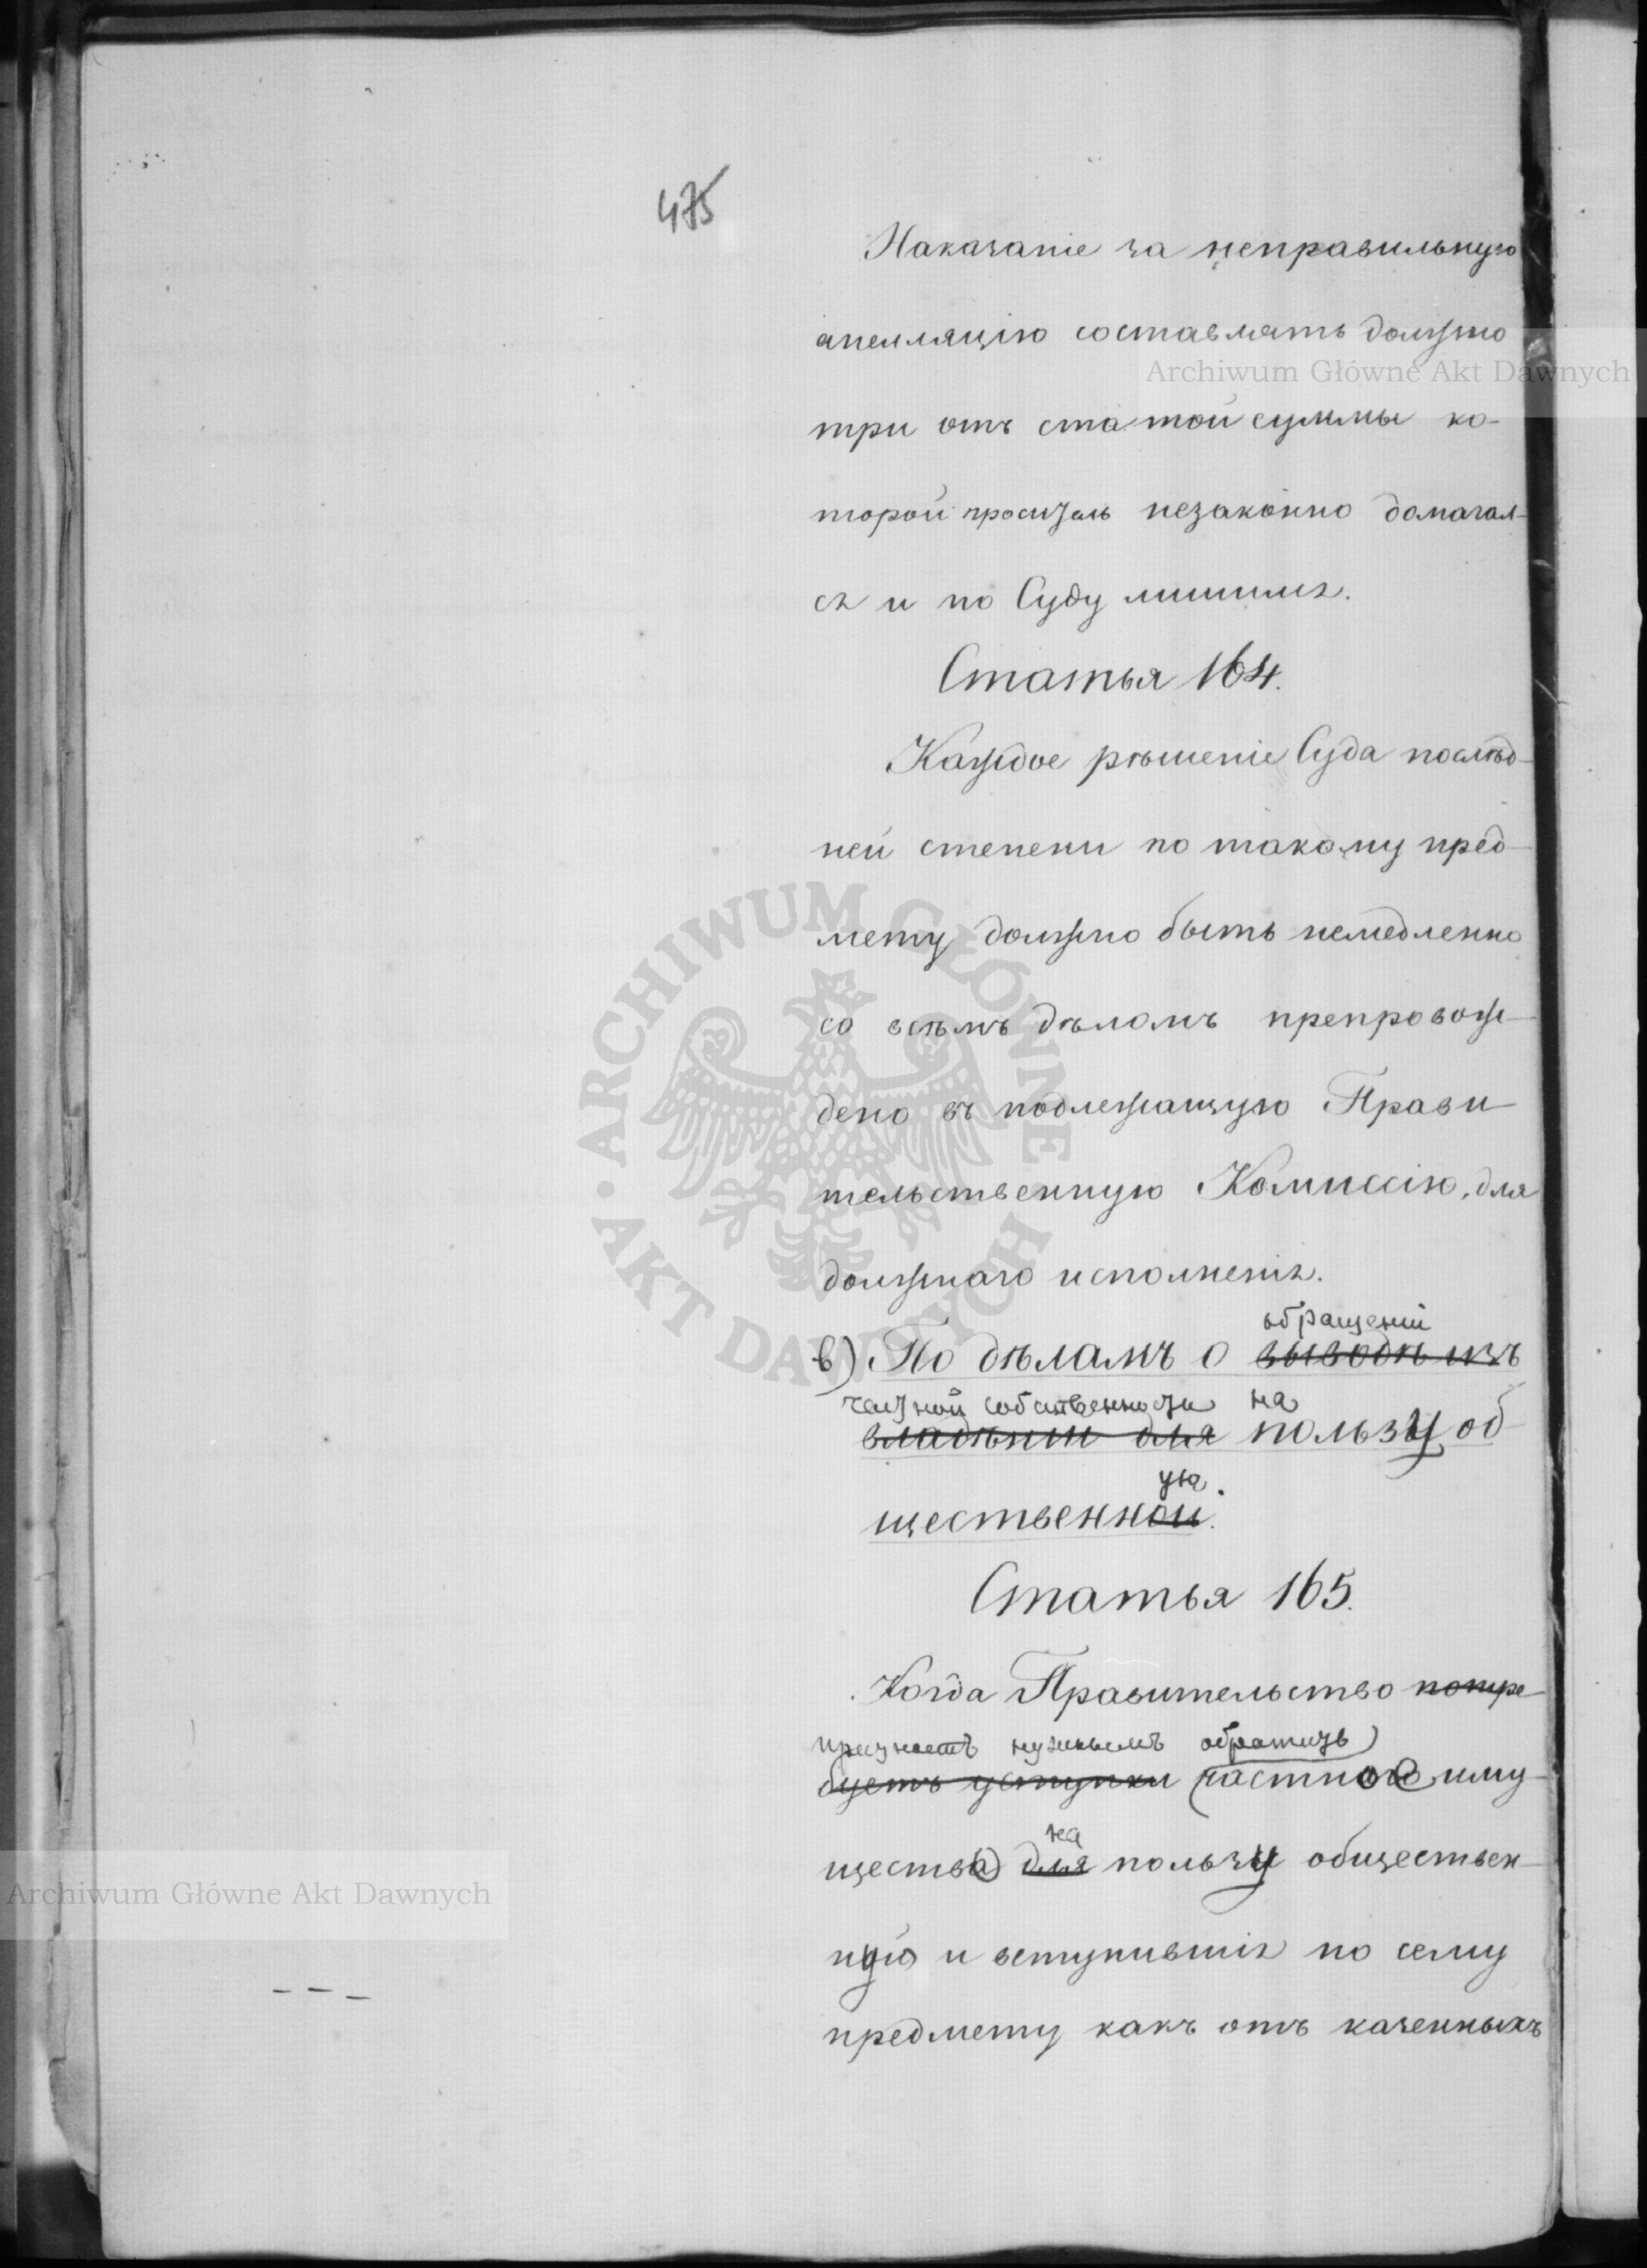 475
Наказаніе за неправильную
апелляцію составлять должно
три отъ ста той суммы ко-
торой проситель незаконно домагал-
ся и по Суду лишился.
Статья 164.
Каждое рѣшеніе Суда послѣд-
ней степени по такому пред-
мету должно быть немедленно
со всѣмъ дѣломъ препровож-
дено въ подлежащую Прави-
тельственную Комиссію, для
должнаго исполненія.
обращеніи
в) По дѣламъ о выводѣ изъ
частной собственности на
владѣнія для пользу об-
ую
щественной.
Статья 165.
Когда Правительство потре-
признаетъ нужнымъ обратить
буетъ уступки частное иму-
на
щество для пользу обществен-
ную и вступившія по сему
предмету какъ отъ казенныхъ
Archiwum Główne Akt Dawnych
ARCHIWUM GŁÓWNE AKT DAWNYCH
Archiwum Główne Akt Dawnych